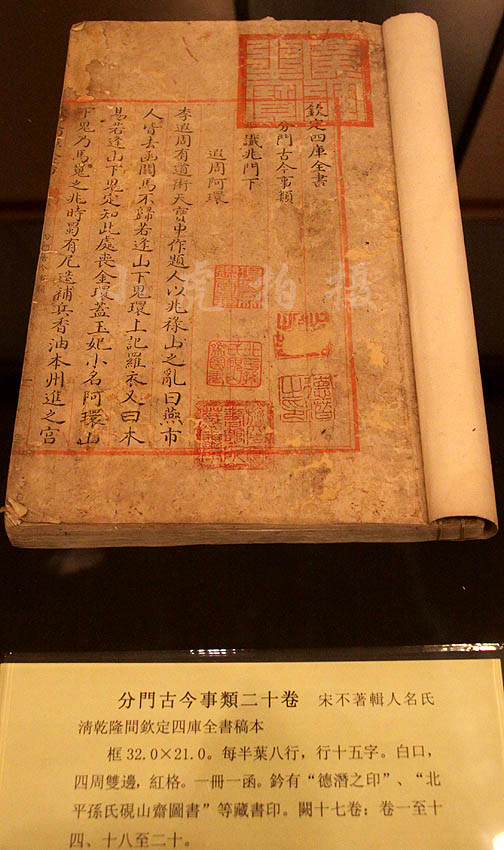 欽定四庫全書
分門古今事類
讖兆門下
遐周阿環
李遐周有道術天寶中作題人以兆祿山之亂曰燕市
人皆去函關馬不歸若逢山下鬼環上記羅衣又曰木
易若逢山下鬼定知此處喪金環蓋玉妃小名阿環山
下鬼乃馬嵬之兆時蜀有尼造補香油本州進之宮
小虎拍摄
分門古今事類二十卷 宋不著輯人名氏
清乾隆間欽定四庫全書稿本
框32.0×21.0。每半葉八行，行十五字。白口，
四周雙邊，紅格。一冊一函。鈐有“德潛之印”、“北
平孫氏硯山齋圖書”等藏書印。闕十七卷：卷一至十
四、十八至二十。